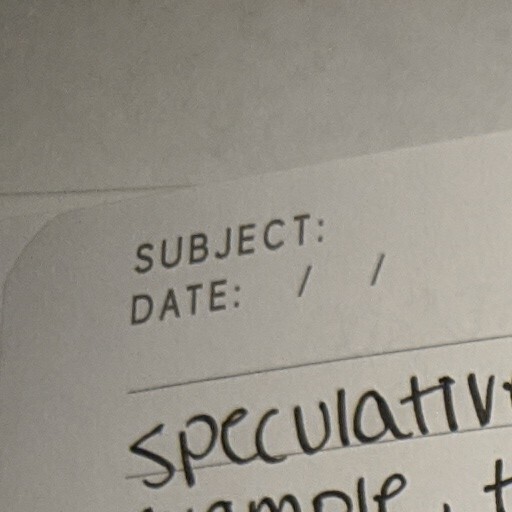 SUBJECT:
DATE: / /
speculativ
example, t